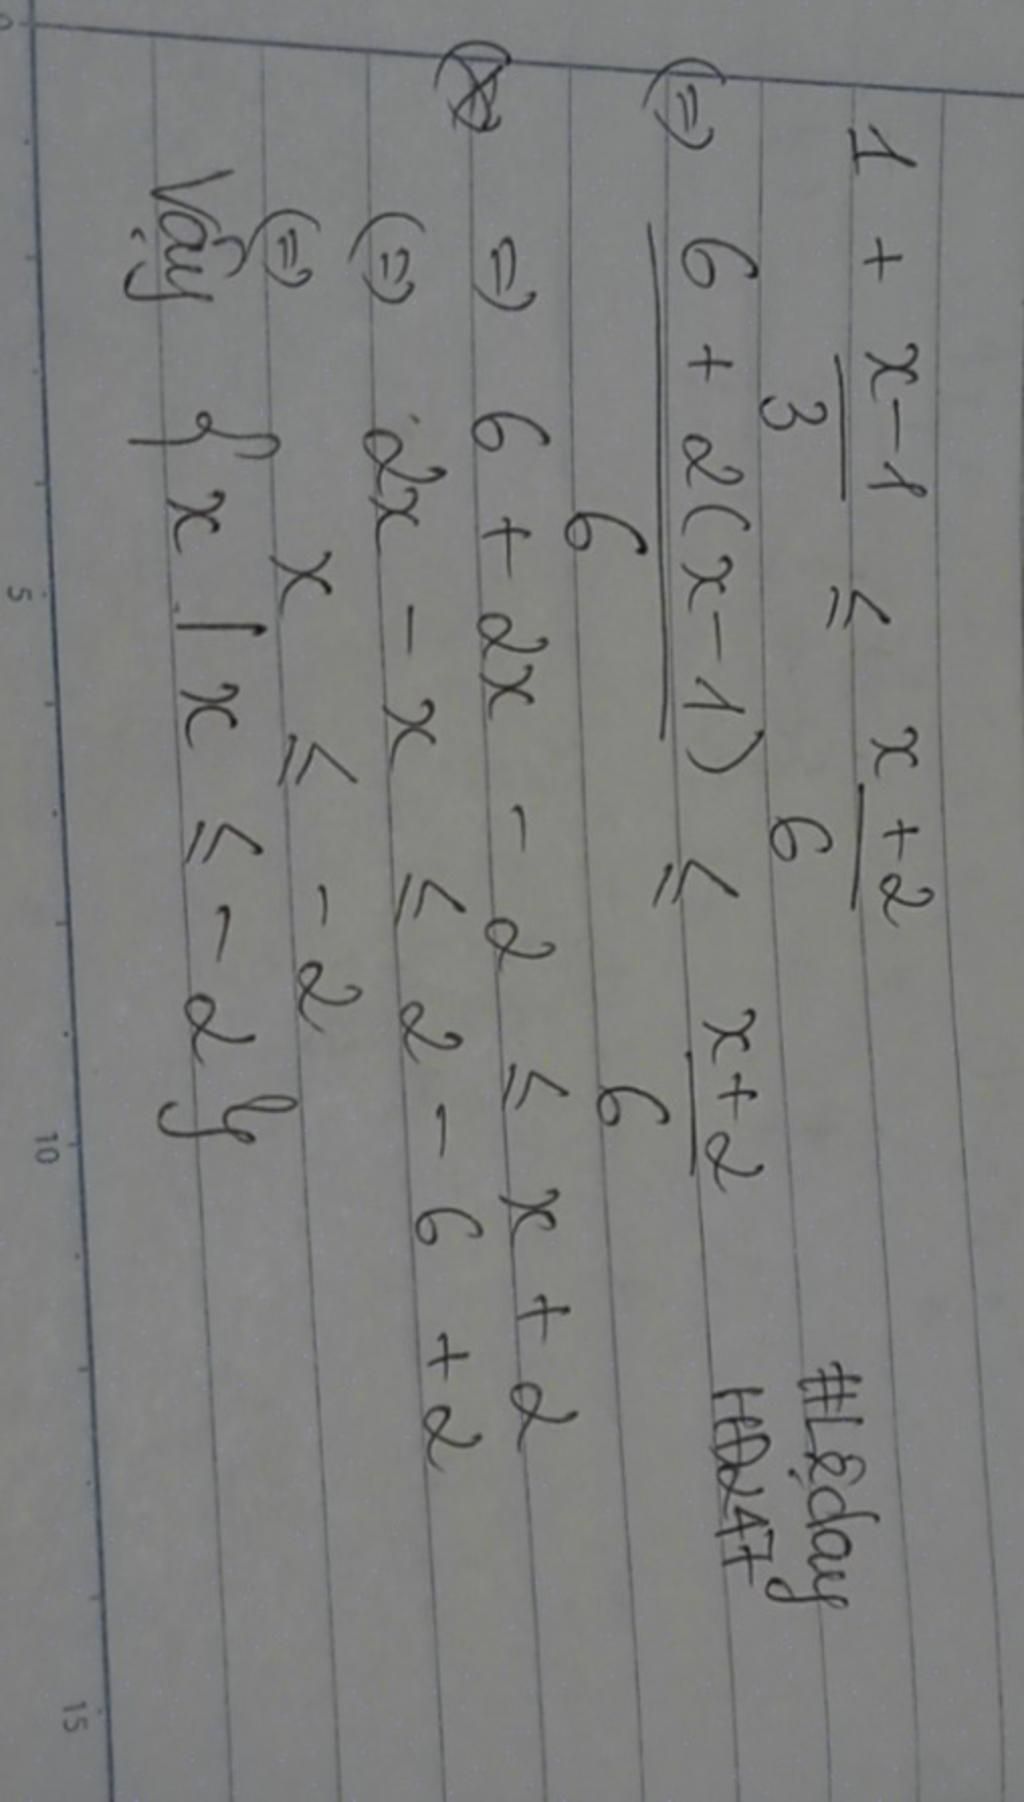 1 + \frac{x-1}{3} ≤ \frac{x+2}{6}
(=) \frac{6 + 2(x-1)}{6} ≤ \frac{x+2}{6}
=) 6 + 2x - 2 ≤ x + 2
(=) 2x - x ≤ 2 - 6 + 2
(=) x ≤ -2
Vậy {x | x ≤ -2}
0 5 10 15